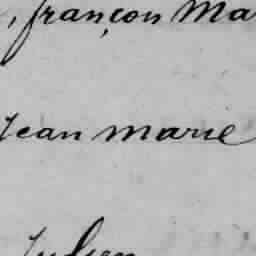 , françois Ma
Jean marie
Julien